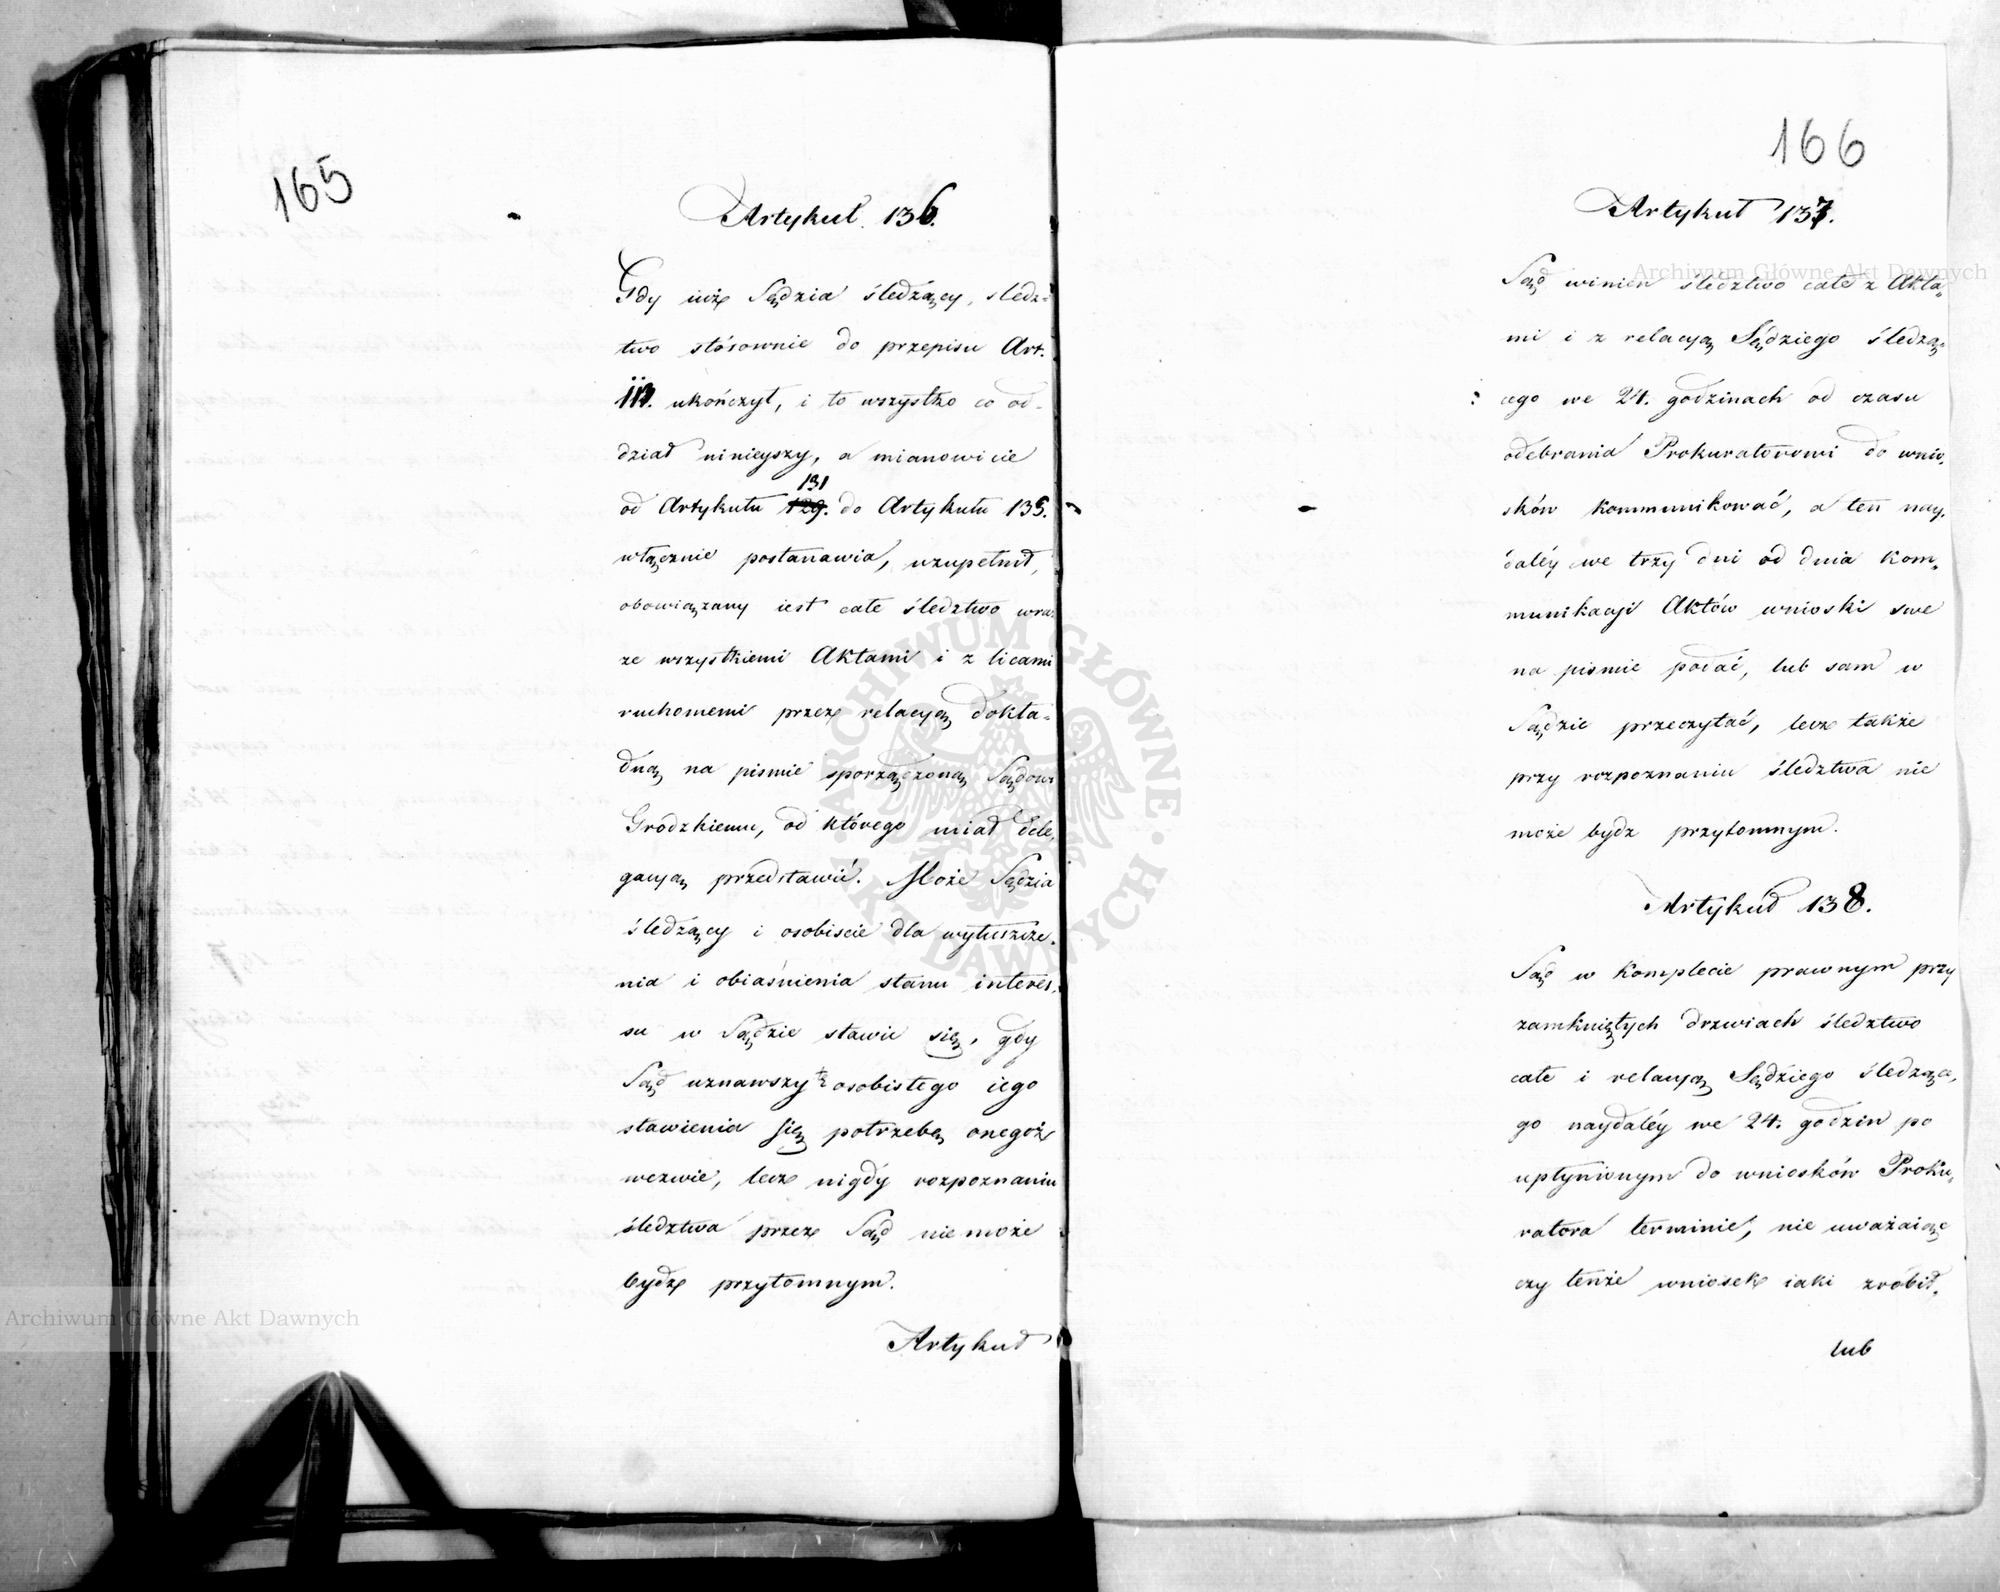 165
Artykuł 136.
Gdy iuż Sędzia śledzący, śledz=
two stósownie do przepisu Art.
ukończył, i to wszystko co od-
dział ninieyszy, a mianowicie
131
od Artykułu 129. do Artykułu 135.
włącznie postanawia, uzupełnił,
obowiązany iest całe śledztwo wra:
ze wszystkiemi Aktami i z licami
ruchomemi przez relacyą dokła=
dną na pismie sporządzoną Sądowi
Grodzkiemu, od którego miał dele,
gacyą przedstawić. Może Sędzia
śledzący i osobiscie dla wyłuszcze,
nia i obiaśnienia stanu interes,
su w Sądzie stawić się, gdy
Sąd uznawszy osobistego iego
stawienia się potrzebę onegoż
wezwie, lecz nigdy rozpoznaniu
śledztwa przez Sąd nie może
bydz przytomnym.
Artykuł
166
Artykuł 137.
Sąd winien śledztwo całe z Akta,
mi i z relacyą Sędziego śledzą,
cego we 24. godzinach od czasu
odebrania Prokuratorowi do wnio,
sków kommunikować, a ten nay,
daléy we trzy dni od dnia kom,
munikacji Aktów wnioski swe
na pismie podać, lub sam w
Sądzie przeczytać, lecz także
przy rozpoznaniu śledztwa nie
może bydz przytomnym.
Artykuł 138.
Sąd w komplecie prawnym przy
zamkniętych drzwiach śledztwo
całe i relacyą Sędziego śledzące,
go naydaléy we 24. godzin po
upłynionym do wniosków Proku,
ratora terminie, nie uważaiąc
czy tenże wniosek iaki zrobił,
lub
Archiwum Główne Akt Dawnych
Archiwum Główne Akt Dawnych
ARCHIWUM GŁÓWNE AKT DAWNYCH